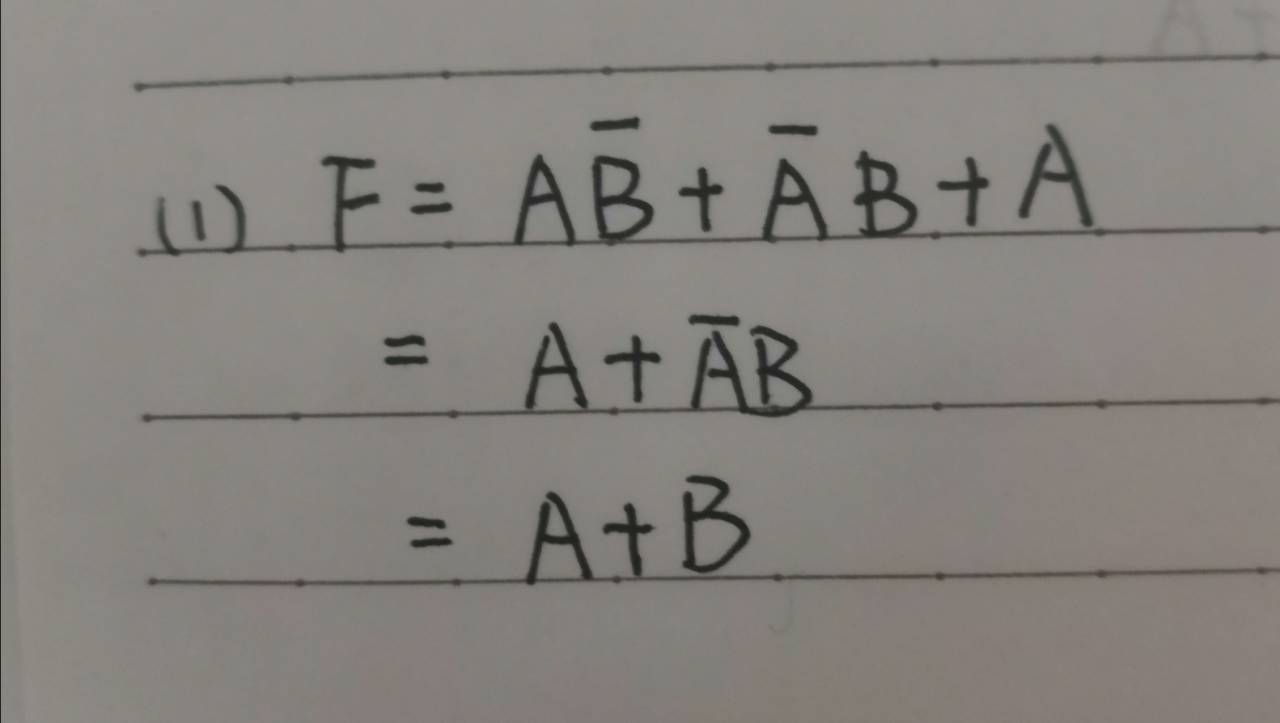 (1) F = AB̅ + A̅B + A
= A + A̅B
= A + B